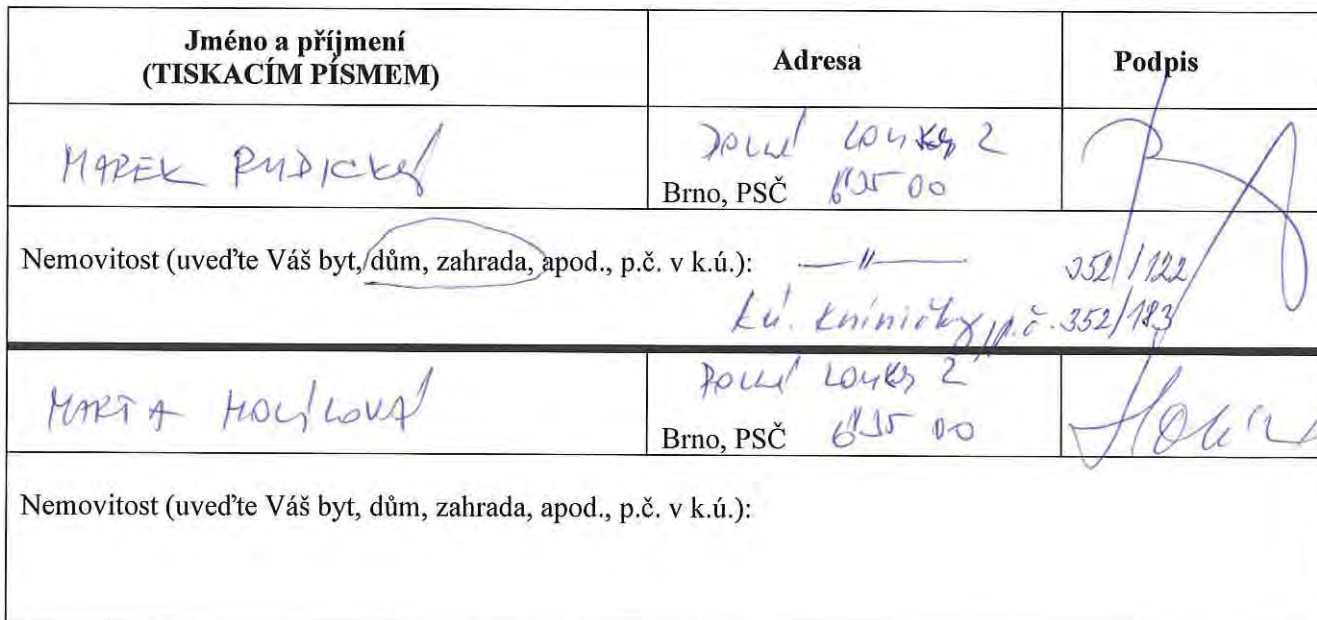 Jméno a příjmení
(TISKACÍM PÍSMEM)
Adresa
Podpis
MAREK RUDICKÝ
DOLNÍ LOUKY 2
Brno, PSČ 635 00
Nemovitost (uveďte Váš byt, dům, zahrada, apod., p.č. v k.ú.): —〃— 352/122
k.ú. Kníničky, p.č. 352/183
MARTA
DOLNÍ LOUKY 2
Brno, PSČ 635 00
Nemovitost (uveďte Váš byt, dům, zahrada, apod., p.č. v k.ú.):